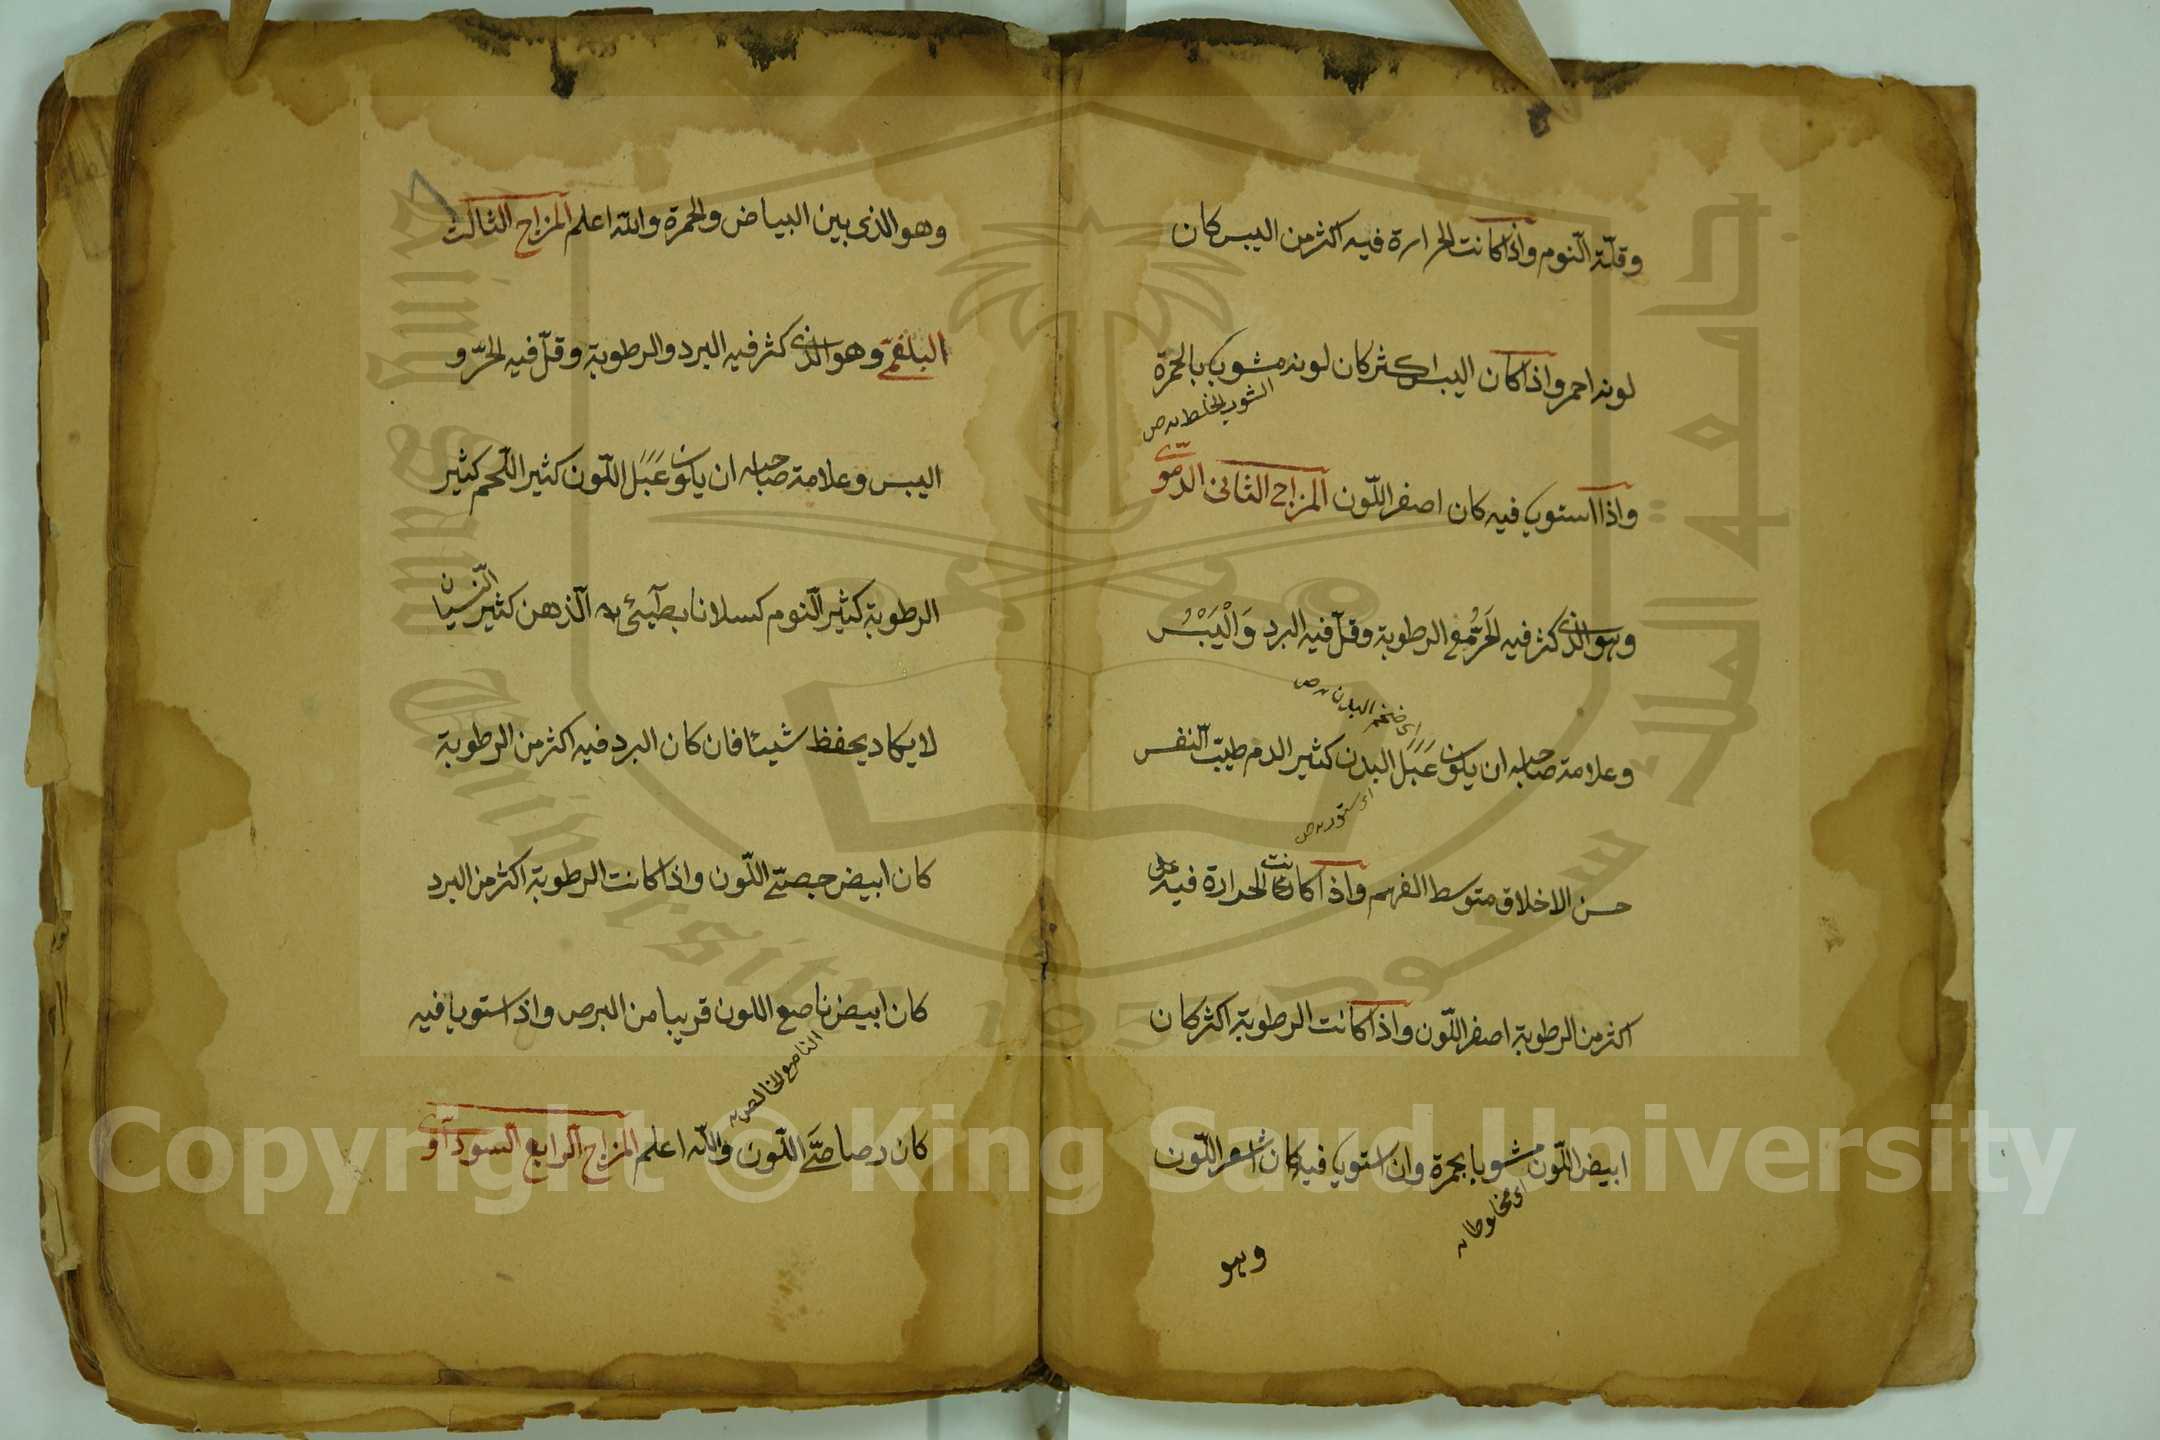 وقلة النوم واذا كانت الحرارة فيه اكثر من اليبس كان
لونه احمر واذا كان اليبس اكثر كان لونه مشوب بالحمرة
الشوب الخلط ص
واذا استوي فيه كان اصفر اللّون المزاج الثانى الدموىّ
وهو الذى كثر فيه الحَرُّ مع الرطوبة وقلّ فيه البرد وَالْيَبْسُ
اى ضخم البدن ص
وعلامة صاحبه ان يكون عَبَل البدن كثير الدم طيّب النفس
حسن الاخلاق متوسط الفهم واذا كانت الحرارة فيه على
اكثر من الرطوبة اصفر اللّون واذا كانت الرطوبة اكثر كان
ابيض اللّون مشوبا بحمرة وان استويا فيه كان اشعر اللّون
اى مخلوطا
وهو
وهو الذى بين البياض والحمرة والله اعلم المزاج الثالث
البلغمى وهو الذى كثر فيه البرد والرطوبة وقلّ فيه الحرّ و
اليبس وعلامة صاحبه ان يكون عَبَل اللّون كثير اللّحم كثير
الرطوبة كثير النّوم كسلانا الذهن كثير النّسيان
لا يكاد يحفظ شيئا فان كان البرد فيه اكثر من الرطوبة
كان ابيض جصىّ اللّون واذا كانت الرطوبة اكثر من البرد
كان ابيض ناصع اللون قريبا من البرص واذ استويا فيه
الناصع الخالص
كان رصاصىَّ اللّون والله اعلم المزاج الرابع السوداوى
جامعة الملك سعود
King Saud University
1957
Copyright © King Saud University